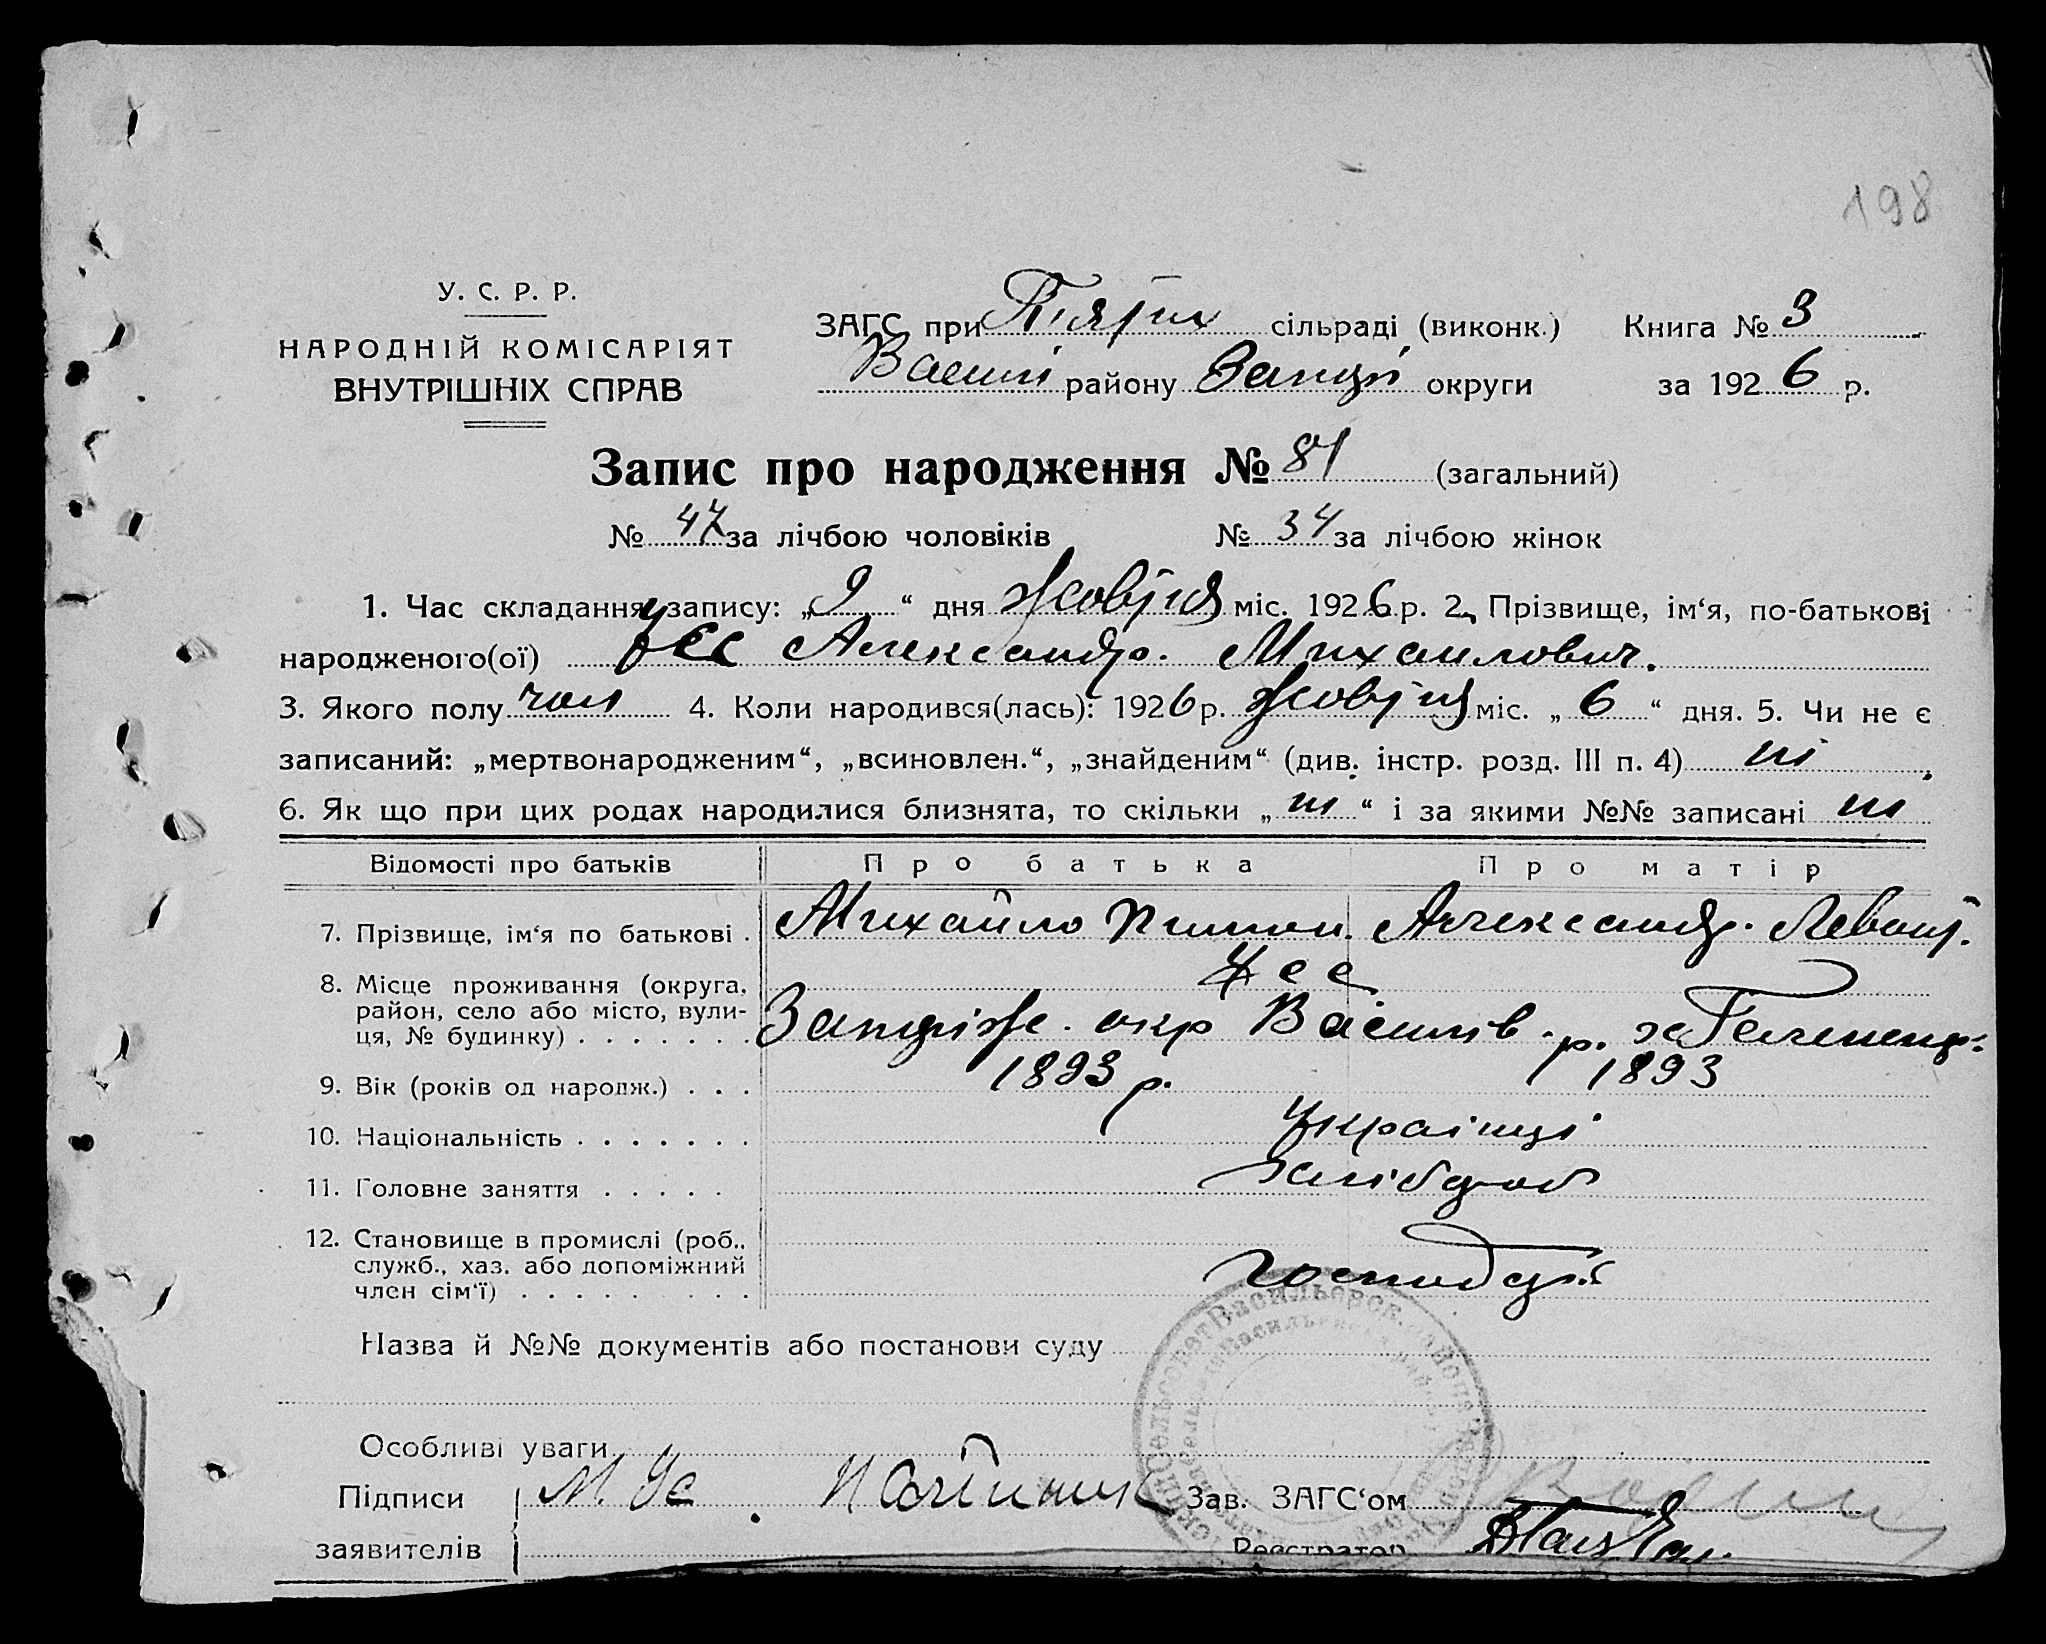 198
У. С. Р. Р.
НАРОДНІЙ КОМІСАРІЯТ
ВНУТРІШНІХ СПРАВ
ЗАГС при сільраді (виконк.) Книга № 3
району округи за 1926 р.
Запис про народження № 81 (загальний)
№ 47 за лічбою чоловіків № 34 за лічбою жінок
1. Час складання запису: „9“ дня Жовтня міс. 1926 р. 2. Прізвище, ім‘я, по-батькові
народженого(ої) Александр. Михаилович.
3. Якого полу чол 4. Коли народився(лась): 1926 р. Жовтня міс. „6“ дня. 5. Чи не є
записаний: „мертвонародженим“, „всиновлен.“, „знайденим“ (див. інстр. розд. III п. 4) ні
6. Як що при цих родах народилися близнята, то скільки „ні“ і за якими №№ записані ні
Відомості про батьків Про батька Про матір
7. Прізвище, ім‘я по батькові . Михайло Александр.
Усс
8. Місце проживання (округа,
район, село або місто, вули-
ця, № будинку) . . . . . . . окр Василів. р.
9. Вік (років од народж.) . . . 1893 р. 1893
10. Національність . . . . . . . Українці
11. Головне заняття . . . . . хлібороб
12. Становище в промислі (роб.,
служб., хаз. або допоміжний
член сім‘ї) . . . . . . . . .
Назва й №№ документів або постанови суду
Особливі уваги
Підписи М. Ус Зав. ЗАГС‘ом
заявителів Реєстратор